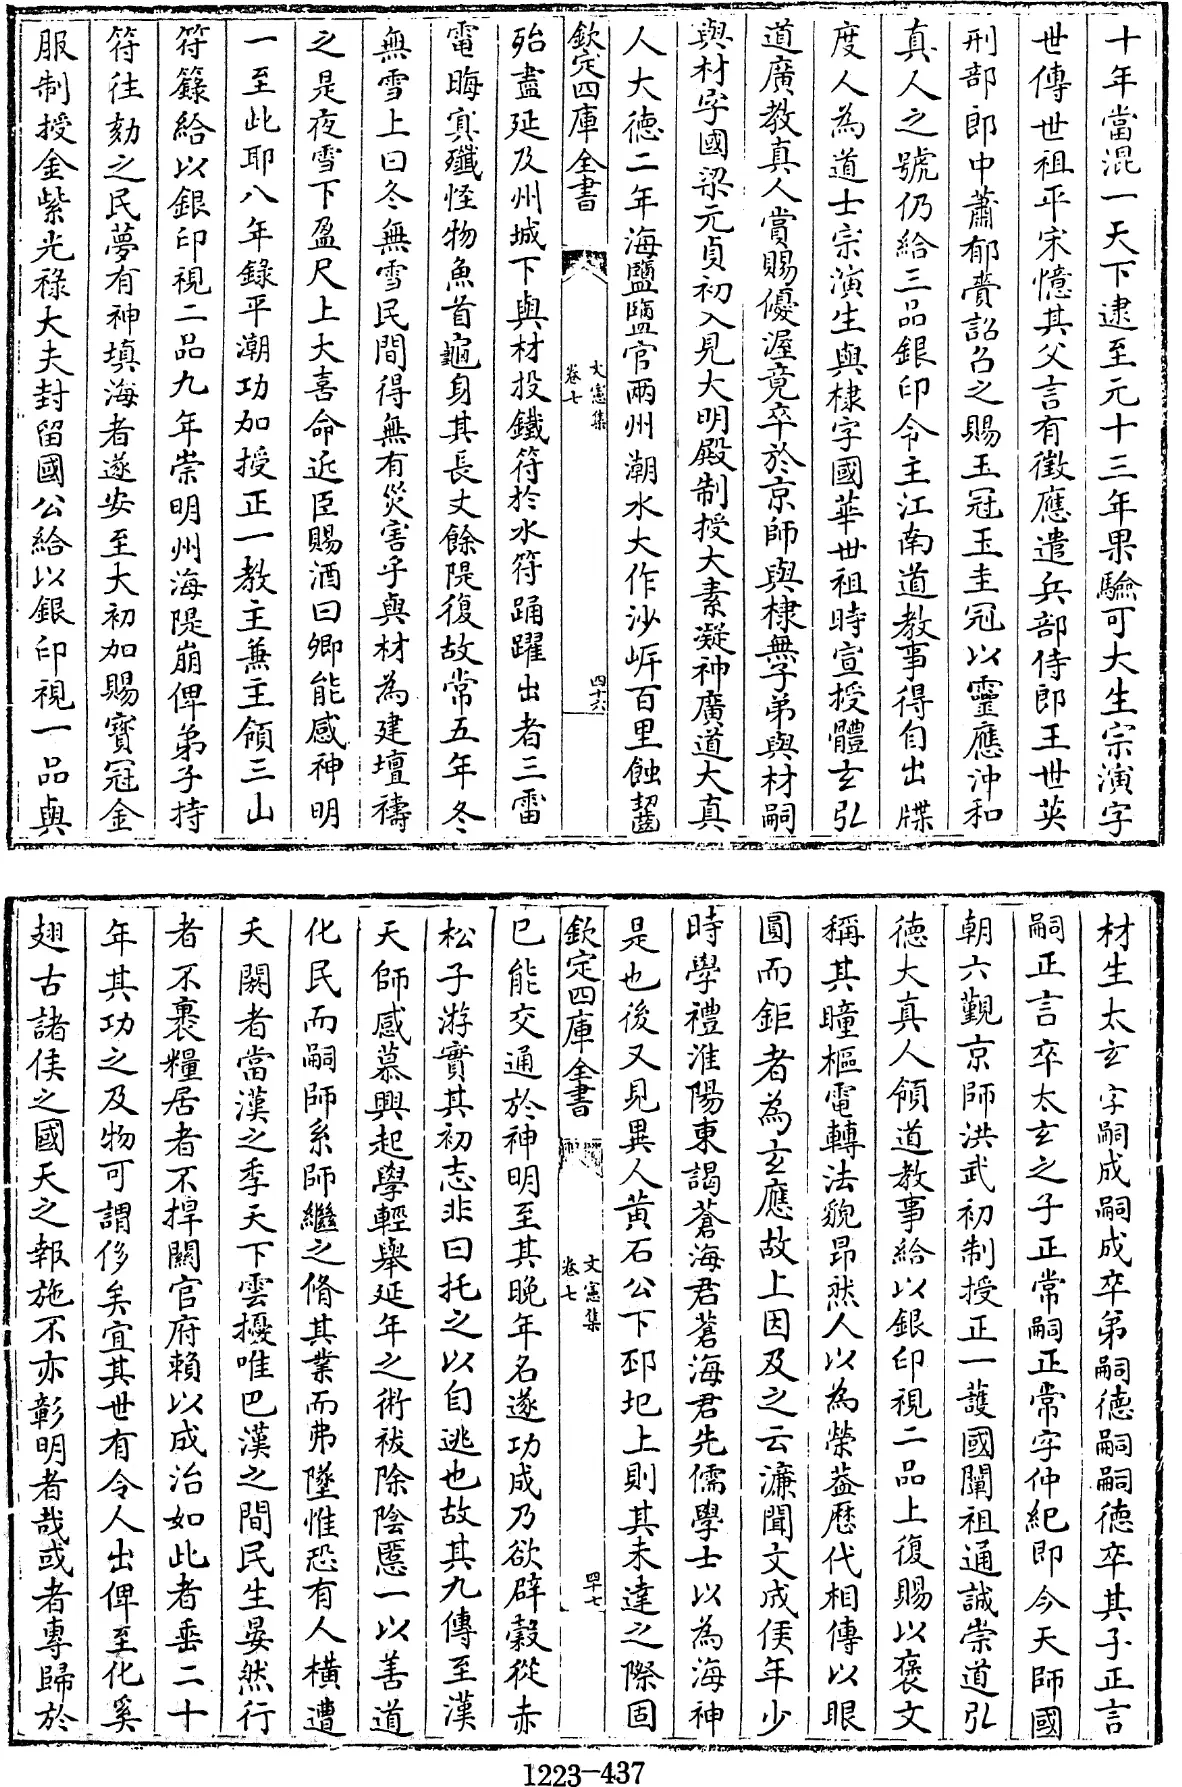 十年當混一天下逮至元十三年果驗可大生宗演字
世傳世祖平宋憶其父言有徵應遣兵部侍郎王世英
刑部郎中蕭郁賫詔召之賜玉冠玉圭冠以靈應沖和
真人之號仍給三品銀印令主江南道教事得自出牒
度人為道士宗演生與棣字國華世祖時宣授體玄弘
道廣教真人賞賜優渥竟卒於京師與棣無子弟與材嗣
與材字國梁元貞初入見大明殿制授大素凝神廣道大真
人大德二年海鹽鹽官兩州潮水大作沙岸百里蝕齧
欽定四庫全書
文憲集
卷七
四十六
殆盡延及州城下與材投鐵符於水符踊躍出者三雷
電晦冥殲怪物魚首龜身其長丈餘隄復故常五年冬
無雪上曰冬無雪民間得無有災害乎與材為建壇禱
之是夜雪下盈尺上大喜命近臣賜酒曰卿能感神明
一至此耶八年錄平潮功加授正一教主兼主領三山
符籙給以銀印視二品九年崇明州海隄崩俾弟子持
符往劾之民夢有神填海者遂安至大初加賜寳冠金
服制授金紫光祿大夫封留國公給以銀印視一品與
材生太玄字嗣成嗣成卒弟嗣德嗣嗣德卒其子正言
嗣正言卒太玄之子正常嗣正常字仲紀即今天師國
朝六覲京師洪武初制授正一護國闡祖通誠崇道弘
德大真人領道教事給以銀印視二品上復賜以褒文
稱其瞳樞電轉法貌昻然人以為榮葢歷代相傳以眼
圓而鉅者為玄應故上因及之云濂聞文成侯年少
時學禮淮陽東謁蒼海君蒼海君先儒學士以為海神
是也後又見異人黃石公下邳圯上則其未達之際固
欽定四庫全書
文憲集
卷七
四十七
已能交通於神明至其晚年名遂功成乃欲辟穀從赤
松子游實其初志非曰托之以自逃也故其九傳至漢
天師感慕興起學輕舉延年之術祓除陰慝一以善道
化民而嗣師系師繼之脩其業而弗墜惟恐有人橫遭
夭閼者當漢之季天下雲擾唯巴漢之間民生晏然行
者不裹糧居者不捍關官府賴以成治如此者垂二十
年其功之及物可謂侈矣宜其世有令人出俾至化奚
翅古諸侯之國天之報施不亦彰明者哉或者專歸於
1223-437